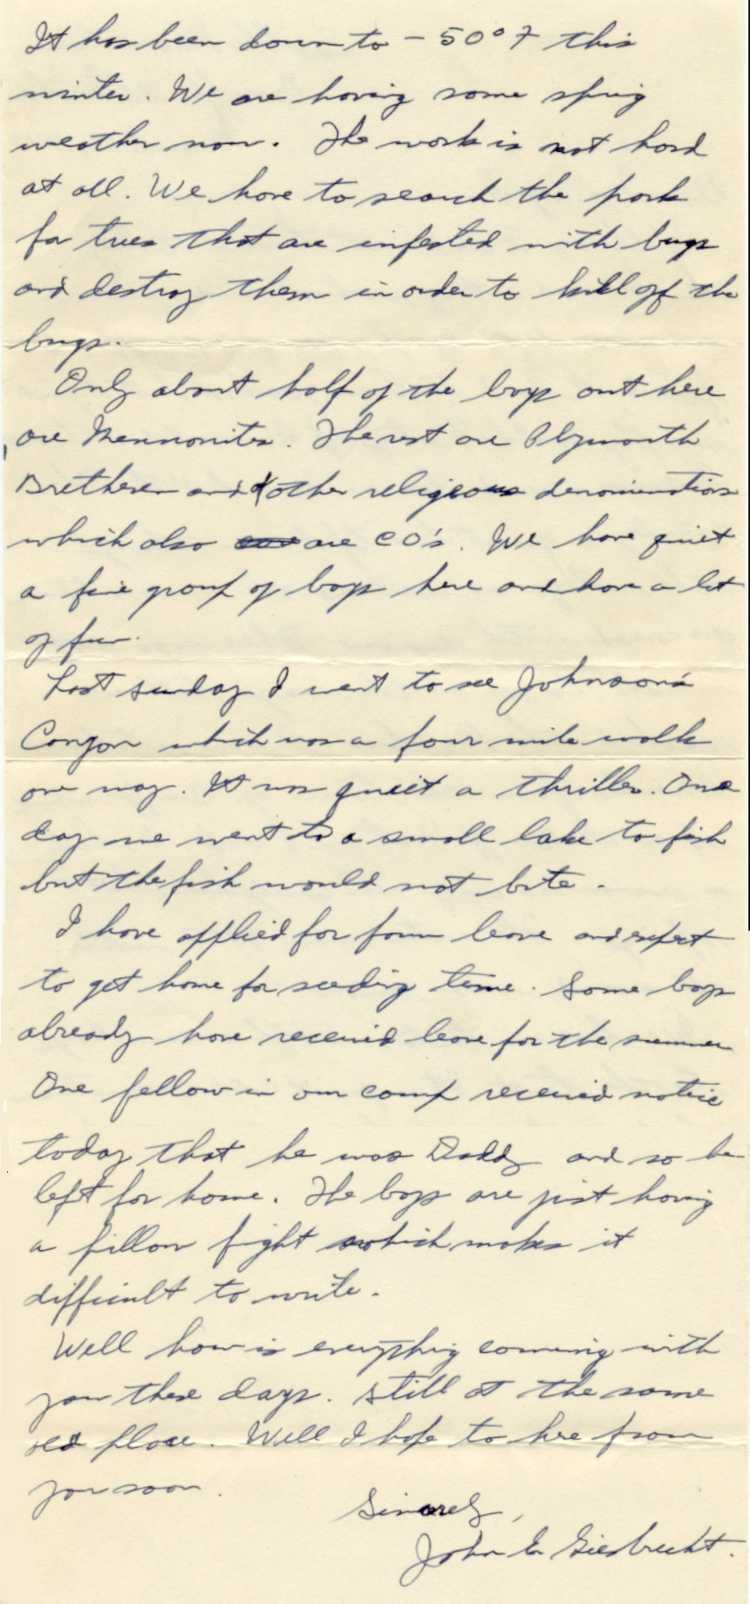 It has been down to -50°F this
winter. We are having some spring
weather now. The work is not hard
at all. We have to search the park
for trees that are infested with bugs
and destroy them in order to kill off the
bugs.
Only about half of the boys out here
are Mennonites. The rest are Plymouth
Bretheren and other religious denominations
which also are CO's. We have quiet
a fine group of boys here and have a lot
of fun.
Last sunday I went to see Johnson's
Canyon which was a four mile walk
one way. It was quiet a thriller. One
day we went to a small lake to fish
but the fish would not bite.
I have applied for farm leave and expect
to get home for seeding time. Some boys
already have received leave for the summer
One fellow in our camp received notice
today that he was Daddy and so he
left for home. The boys are just having
a pillow fight which makes it
difficult to write.
Well how is everything coming with
you these days. Still at the same
old place. Well I hope to hre from
you soon.
Sincerely,
John E. Giesbrecht.